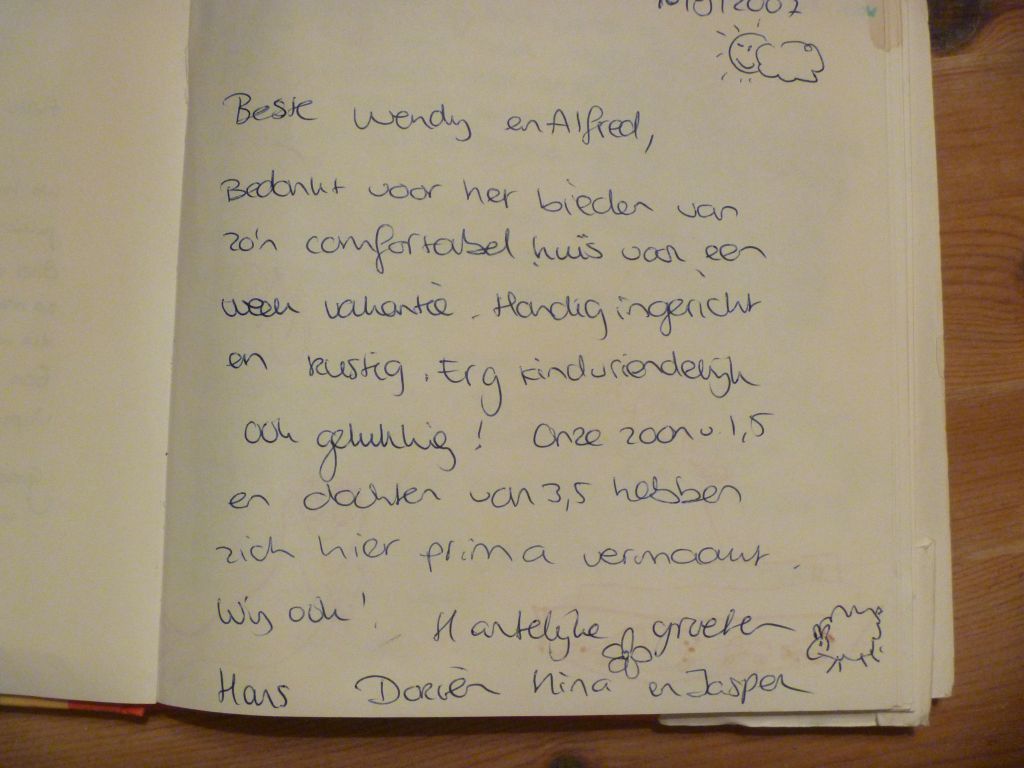 Beste Wendy en Alfred,
Bedankt voor het bieden van
zo'n comfortabel huis voor een
week vakantie. Handig ingericht
en rustig. Erg kindvriendelijk
ook gelukkig! Onze zoon v. 1,5
en dochter van 3,5 hebben
zich hier prima vermaakt.
Wij ook! Hartelijke groeten
Hans Doriën Nina en Jasper